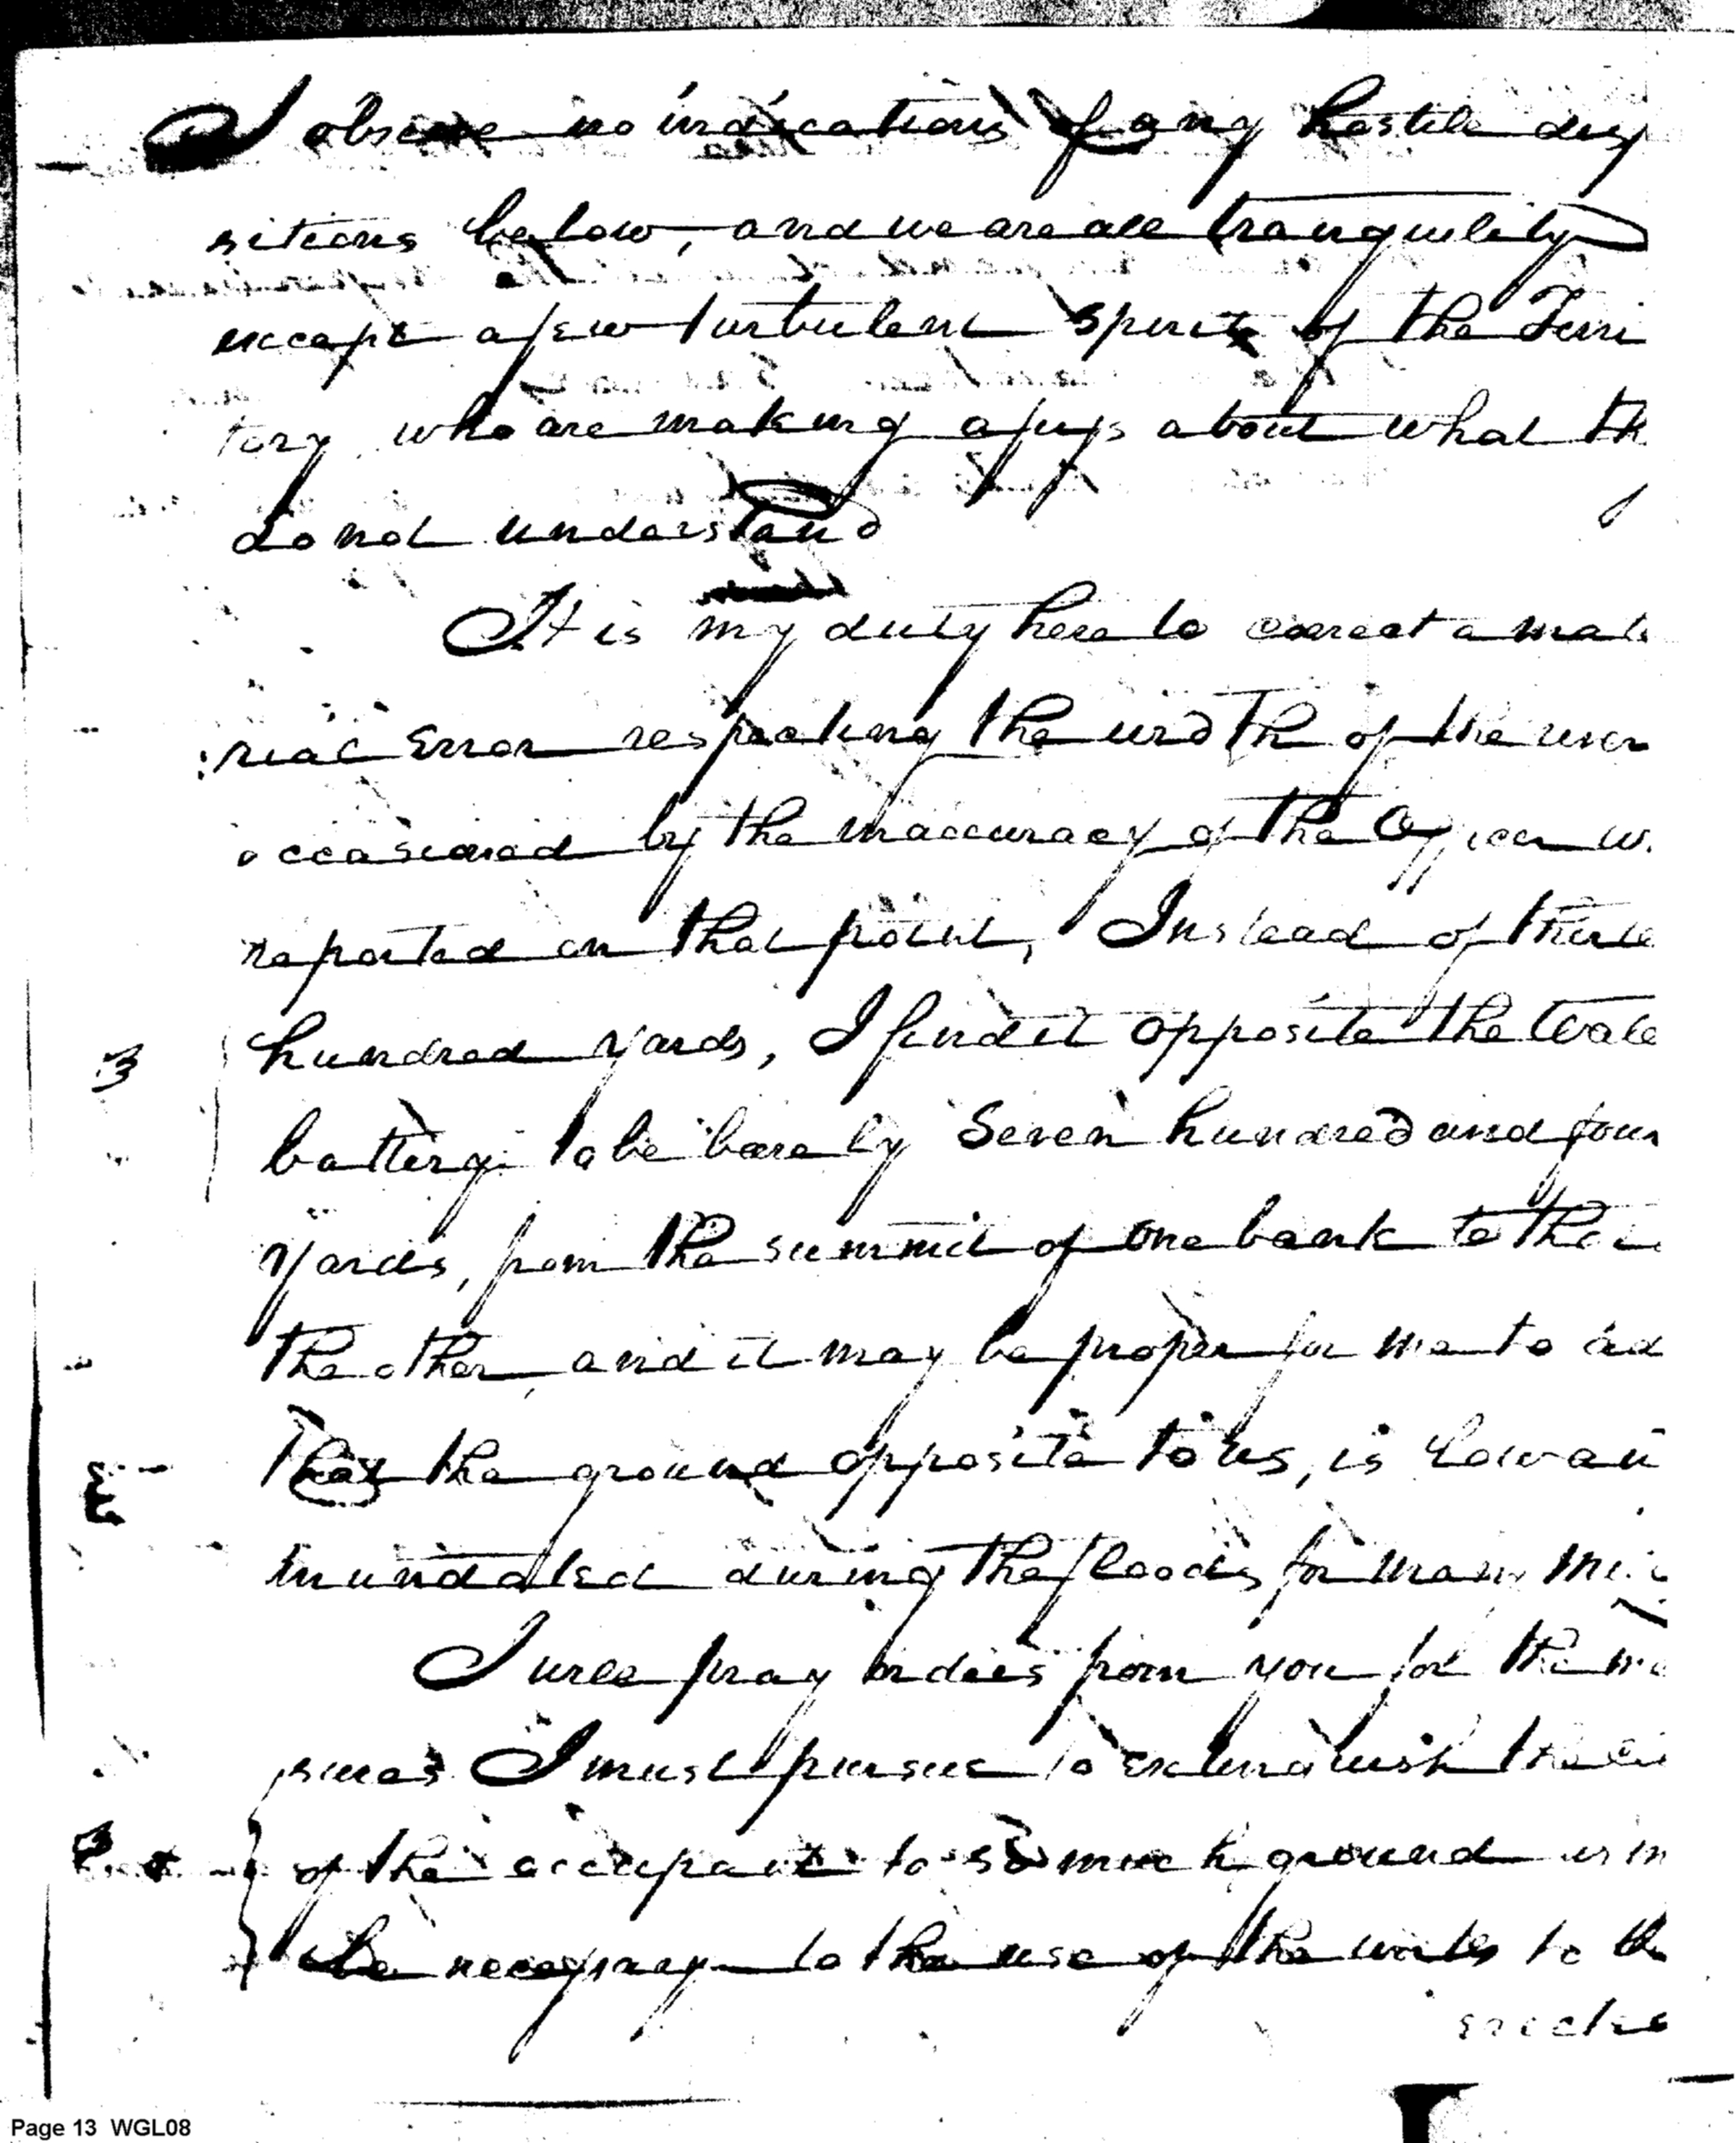 I observe no indications of any hostile disp
sitions below, and we are all tranquility
except a few turbulent spirits of the Terri
tory who are making a fuss about what th
do not understand
It is my duty here to correct a mate
rial Error respecting the width of the river
occasioned by the inaccuracy of the Officer w
reported on that point, Instead of thirte
hundred yards, I find it opposite the Wate
battery to be barely Seven hundred and four
Yards, from the summit of one bank to the
the other, and it may be proper for me to ad
that the ground opposite to us, is Low an
inundated during the floods for many mi
I will pray orders from you for the me
sures I must pursue to extinguish the
of the occupant to so much ground as m
be necessary to the use of the works to be
erected
3
Page 13 WGL08